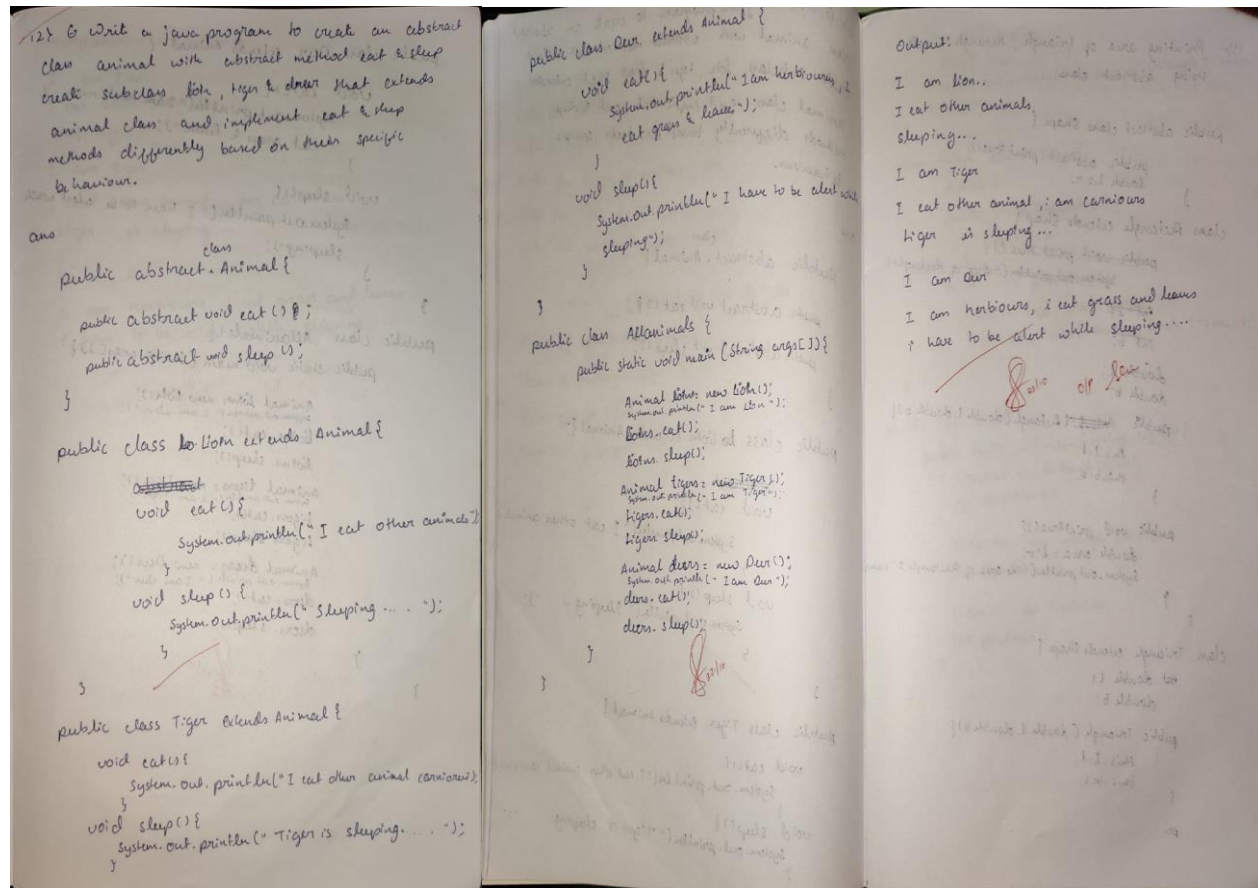 12} 6 Write a java program to create an abstract
class animal with abstract method eat & sleep
create subclass lion, tiger & dreer that, extends
animal class and implement eat & sleep
methods differently based on their specific
behaviour.
ans
class
public abstract Animal {
public abstract void eat () ;
public abstract void sleep ();
}
public class Lion extends Animal {
void eat () {
System.out.println(" I eat other animals");
}
void sleep () {
System.out.println(" Sleeping .... ");
}
}
public class Tiger extends Animal {
void eat() {
System.out.println("I eat other animal carniorous);
}
void sleep () {
System.out.println(" Tiger is sleeping.... ");
}
public class Deer extends Animal {
void eat() {
System.out.println("I am herbiourus, I
eat grass & leaves");
}
void sleep() {
System.out.println(" I have to be alert while
sleeping");
}
}
public class Allanimals {
public static void main (String args[]) {
Animal lions= new Lion();
System.out.println(" I am Lion ");
lions.eat();
lions.sleep();
Animal tigers= new Tiger();
System.out.println(" I am Tiger");
tigers.eat();
tigers.sleep();
Animal deers= new Deer();
System.out.println(" I am Deer ");
deers.eat();
deers.sleep();
}
}
Output:
I am lion..
I eat other animals
sleeping...
I am Tiger
I eat other animal, i am carniours
tiger is sleeping...
I am Deer
I am herbiours, i eat grass and leaves
i have to be alert while sleeping....
o/p